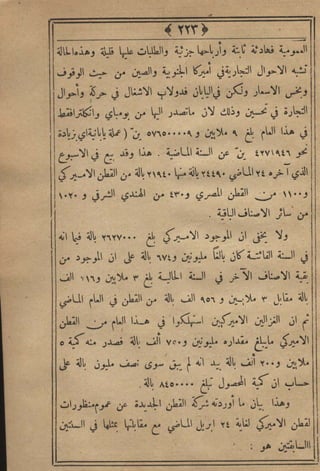 ﴿ ٢٢٣ ﴾
العمومية فهادئة ثابتة وأرباحها جزئية والطلبات عليها قليلة وهذه الحالة
تشبه الاحوال التجارية في أميركا الجنوبية والصين من حيث الوقوف
وبخس الاسعار ولكن في اليابان فدولاب الاشغال في حركة وأحوال
التجارة في تحسين وذلك لان ماتصدر اليها من بومباي وانكلترا فقط
في هذا العام بلغ ٩ ملايين و٥٧٦٥٠٠٠٠ ين (عملة يابانية) أي بزيادة
نحو ٤٢٧١٩٤٦ ين عن السنة الماضية . هذا وقد بيع في الاسبوع
الذي آخره ٢٤ الماضي ٢٤٤٩٠ بالة منها ٢١٩٤٠ بالة من القطن الاميركي
و١١٠٠ من القطن المصري و٤٣٠ من الهندي الشرقي و١٠٢٠
من سائر الاصناف الباقية .
ولا يخفى ان الموجود الاميركي بلغ ٢٦٢٧٠٠٠ بالة فيما انه
في السنة الفائتة كان بالغاً مليونين و٦٧٤ بالة على ان الموجود من
بقية الاصناف الآخر في السنة الحالية بلغ ٣ ملايين و١١٦ الف
بالة مقابل ٣ ملايين و٩٥٦ الف بالة من القطن في العام الماضي
ثم ان الغزالين الاميركيين استهلكوا في هذا العام من القطن
الاميركي مايبلغ مقداره مليونين و٧٥٠ ألف بالة فصدر منه كمية ٥
ملايين و٢٠٠ ألف بالة بيد انه لم يبق سوى نصف مليون بالة على
حساب ان كمية المحصول تبلغ ٨٤٥٠٠٠٠ بالة .
وهذا بيان ما أوردته شركة القطن الجديدة عن عموم منظورات
لقطن الاميركي لغاية ٢٤ ابريل الماضي مع مقابلتها بمثلها في السنتين
السابقتين هو :